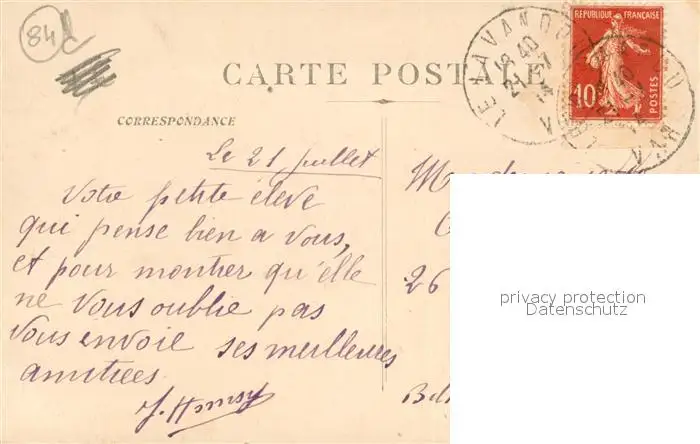 84
CARTE POSTALE
REPUBLIQUE FRANÇAISE
10
POSTES
LE LAVANDOU
VAR
21 - 7
CORRESPONDANCE
Le 21 juillet
Votre petite élève
qui pense bien a vous,
et pour montrer qu'elle
ne vous oublie pas
vous envoie ses meilleures
amitiées
26
privacy protection
Datenschutz